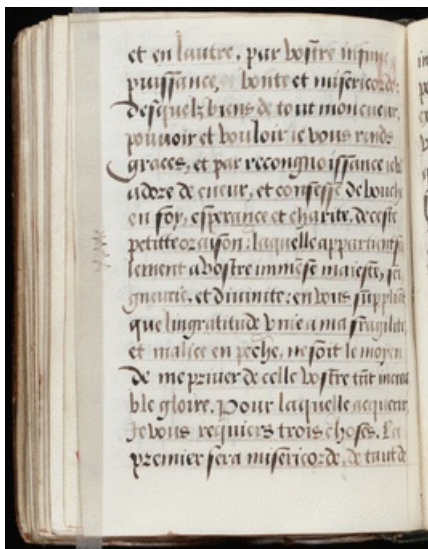 et en lautre, par vostre infinie
puissance, bonte et misericorde:
desquelz biens de tout mon cueur,
pouuoir et vouloir ie vous rends
graces, et par recongnoissance
adore de cueur, et confesse de bouche
en foy, esperance et charite, de ceste
petitte oraison: laquelle appartient
lement a vostre immense maieste, sei
gneurie, et diuinite: en vous suppliant
que lingratitude vnie a ma fragilite
et malice en peche, ne soit le moyen
de me priuer de celle vostre tant
ble gloire. Pour laquelle acquerir
Je vous requiers trois choses. La
premier sera misericorde, de tant de